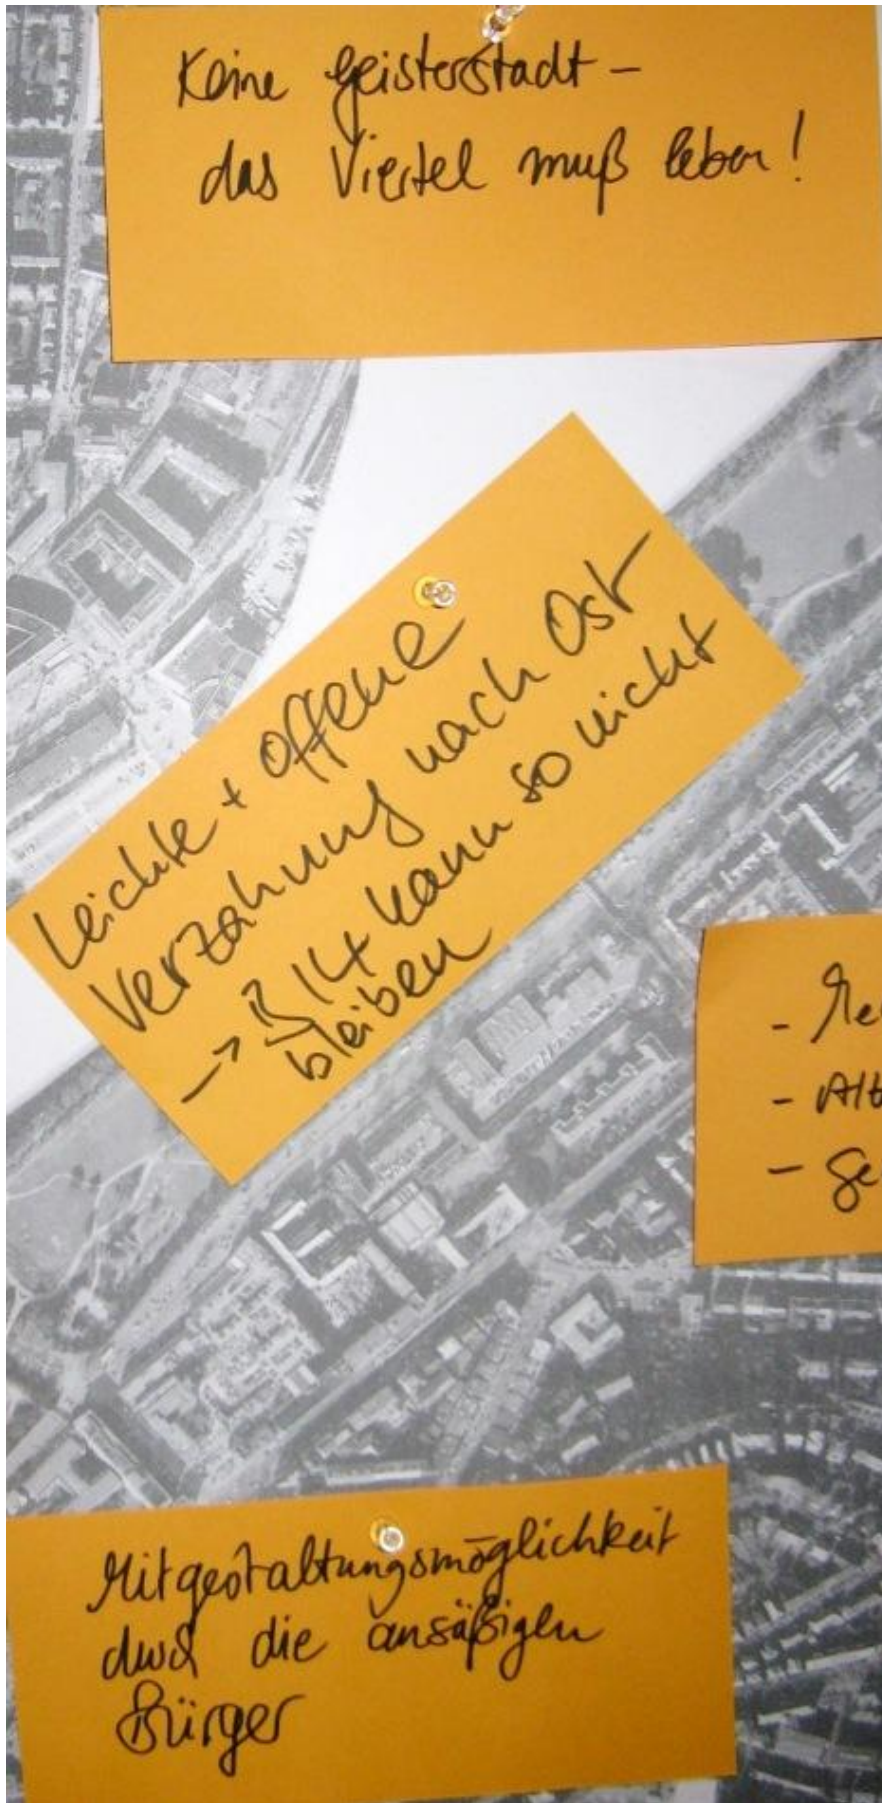 Keine Geisterstadt –
das Viertel muß leben!
Leichte + offene
Verzahnung nach Ost
→ B14 kann so nicht
bleiben
-
- Alt
- Ge
Mitgestaltungsmöglichkeit
durch die ansäßigen
Bürger